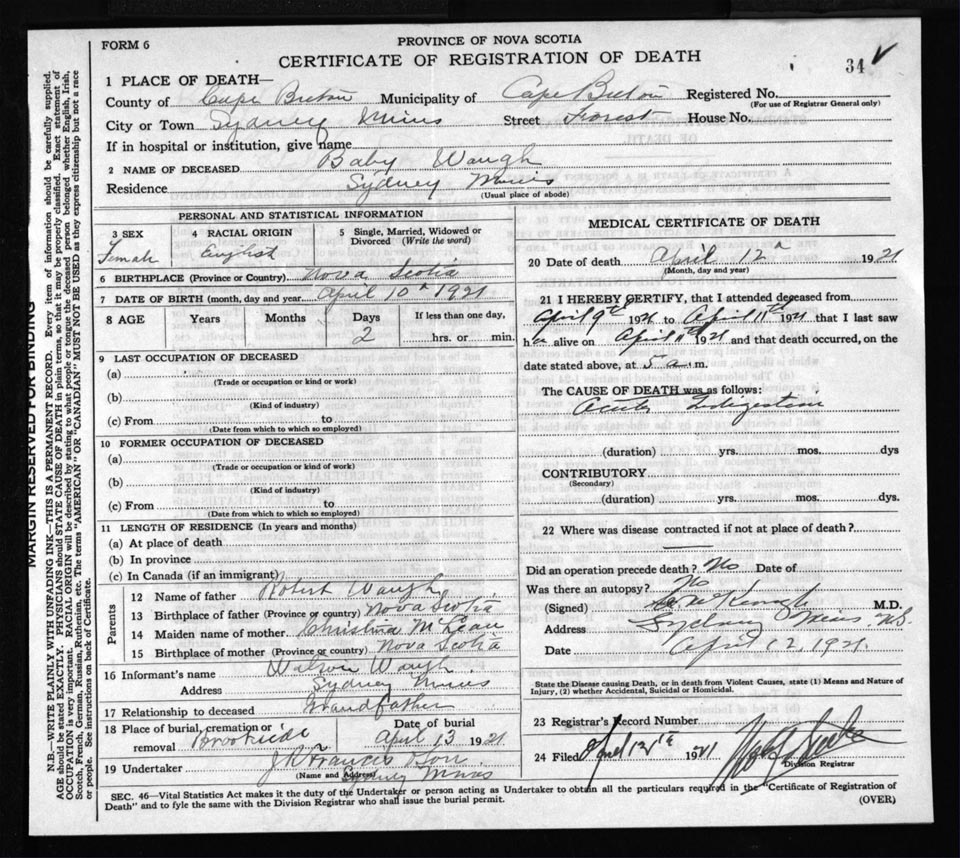 FORM 6
PROVINCE OF NOVA SCOTIA
CERTIFICATE OF REGISTRATION OF DEATH
34
1 PLACE OF DEATH—
County of Cape Breton Municipality of Cape Breton Registered No.
(For use of Registrar General only)
City or Town Sydney Mines Street Forest House No.
If in hospital or institution, give name
2 NAME OF DECEASED Baby Waugh
Residence Sydney Mines
(Usual place of abode)
PERSONAL AND STATISTICAL INFORMATION
3 SEX
Female
4 RACIAL ORIGIN
English
5 Single, Married, Widowed or
Divorced (Write the word)
6 BIRTHPLACE (Province or Country) Nova Scotia
7 DATE OF BIRTH (month, day and year) April 10th 1921
8 AGE Years Months Days If less than one day,
2 hrs. or min.
9 LAST OCCUPATION OF DECEASED
(a)
(Trade or occupation or kind or work)
(b)
(Kind of industry)
(c) From to
(Date from which to which so employed)
10 FORMER OCCUPATION OF DECEASED
(a)
(Trade or occupation or kind of work)
(b)
(Kind of industry)
(c) From to
(Date from which to which so employed)
11 LENGTH OF RESIDENCE (In years and months)
(a) At place of death
(b) In province
(c) In Canada (if an immigrant)
Parents
12 Name of father Robert Waugh
13 Birthplace of father (Province or country) Nova Scotia
14 Maiden name of mother Christina McLean
15 Birthplace of mother (Province or country) Nova Scotia
16 Informant's name Watson Waugh
Address Sydney Mines
17 Relationship to deceased Grandfather
18 Place of burial, cremation or
removal Brookside
Date of burial
April 13 1921
19 Undertaker J R Francis Son
(Name and Address)
Sydney Mines
MEDICAL CERTIFICATE OF DEATH
20 Date of death April 12th 1921
(Month, day and year)
21 I HEREBY CERTIFY, that I attended deceased from
April 9th 1921 to April 11th 1921 that I last saw
her alive on April 11th 1921 and that death occurred, on the
date stated above, at 5 a.m.
The CAUSE OF DEATH was as follows:
Acute Indigestion
(duration) yrs. mos. dys
CONTRIBUTORY
(Secondary)
(duration) yrs. mos. dys.
22 Where was disease contracted if not at place of death?
Did an operation precede death? No Date of
Was there an autopsy? No
(Signed) M.D.
Address Sydney Mines N.S.
Date April 12, 1921.
State the Disease causing Death, or in death from Violent Causes, state (1) Means and Nature of
Injury, (2) whether Accidental, Suicidal or Homicidal.
23 Registrar's Record Number
24 Filed April 12th 1921
Division Registrar
SEC. 46—Vital Statistics Act makes it the duty of the Undertaker or person acting as Undertaker to obtain all the particulars required in the "Certificate of Registration of
Death" and to fyle the same with the Division Registrar who shall issue the burial permit.
(OVER)
MARGIN RESERVED FOR BINDING
N.B.—WRITE PLAINLY WITH UNFADING INK—THIS IS A PERMANENT RECORD. Every item of information should be carefully supplied.
AGE should be stated EXACTLY. PHYSICIANS should STATE CAUSE OF DEATH in plain terms, so that it may be properly classified. Exact statement of
OCCUPATION is very important. RACIAL ORIGIN will be described by stating to what people or tongue the deceased person belonged whether English, Irish,
Scotch, French, German, Russian, Ruthenian, etc. The terms "AMERICAN" OR "CANADIAN" MUST NOT BE USED as they express citizenship but not a race
or people. See instructions on back of Certificate.